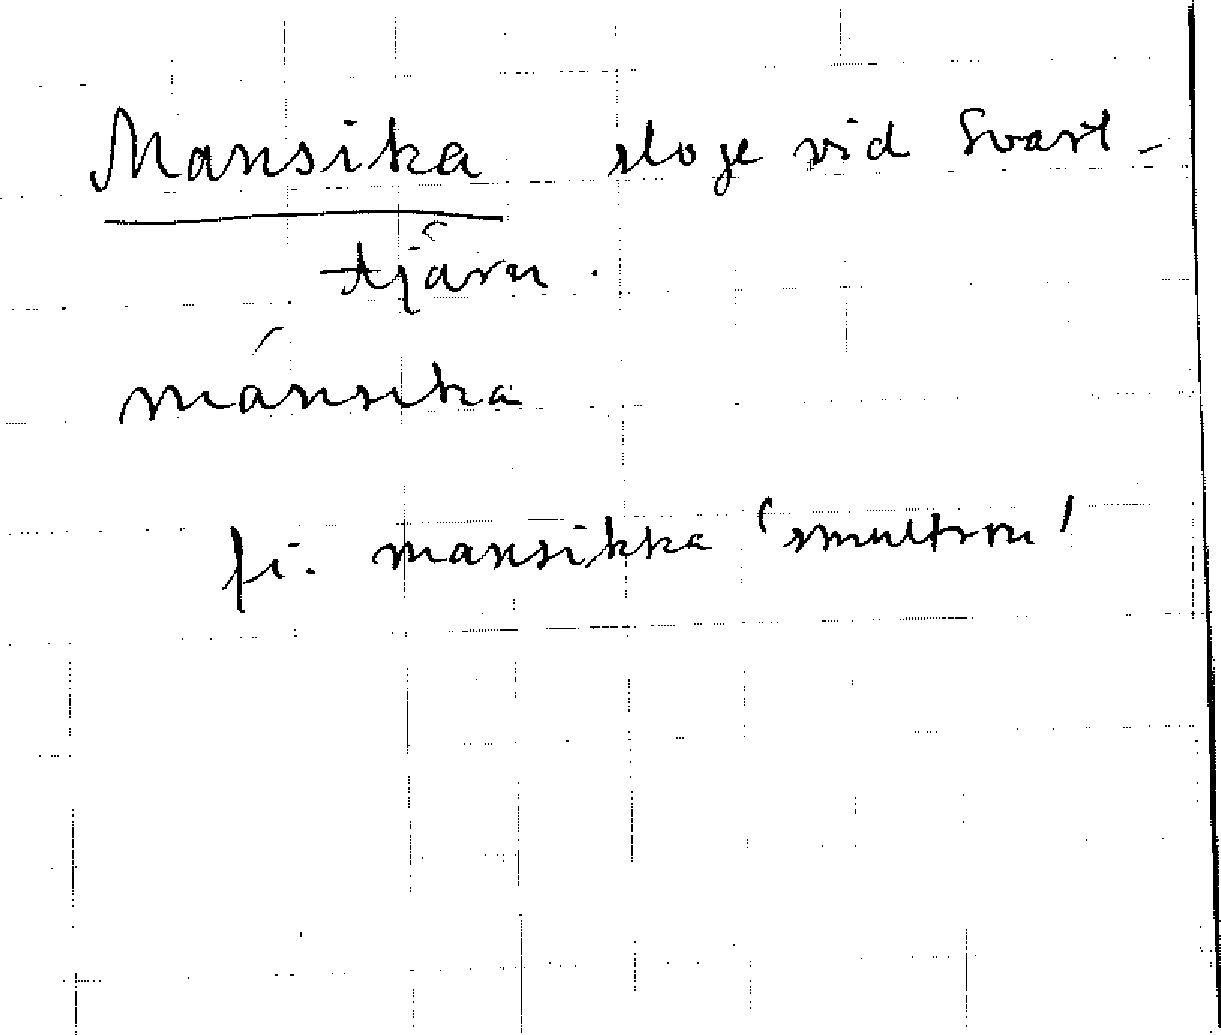 Mansika sloge vid Svart-
tjärn.
mánsika
fi. mansikka 'smultron'